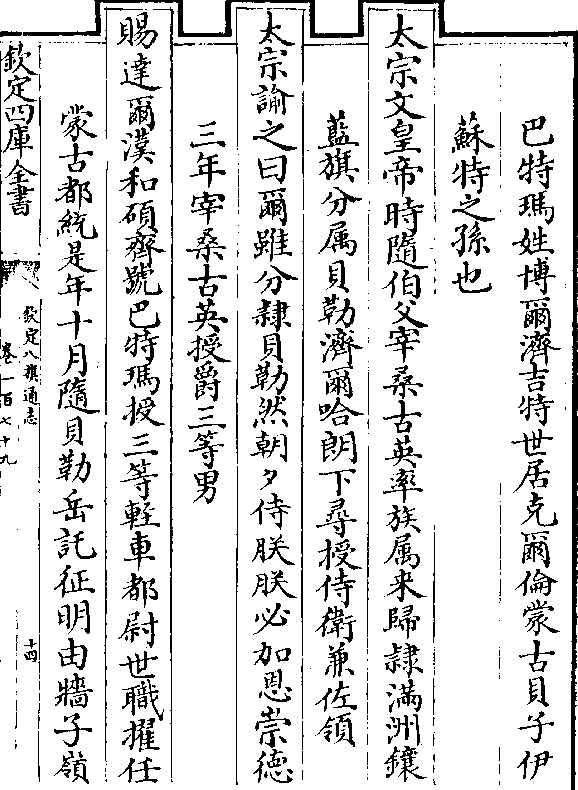 巴特瑪姓博爾濟吉特世居克爾倫蒙古貝子伊
蘇特之孫也
太宗文皇帝時隨伯父宰桑古英率族属来歸隷滿洲鑲
藍旗分属貝勒濟爾哈朗下尋授侍衛兼佐領
太宗諭之曰爾雖分隷貝勒然朝夕侍朕朕必加恩崇德
三年宰桑古英授爵三等男
賜達爾漢和碩齊號巴特瑪授三等輕車都尉世職擢任
蒙古都統是年十月隨貝勒岳託征明由牆子嶺
欽定四庫全書
欽定八旗通志
卷一百七十九
十四